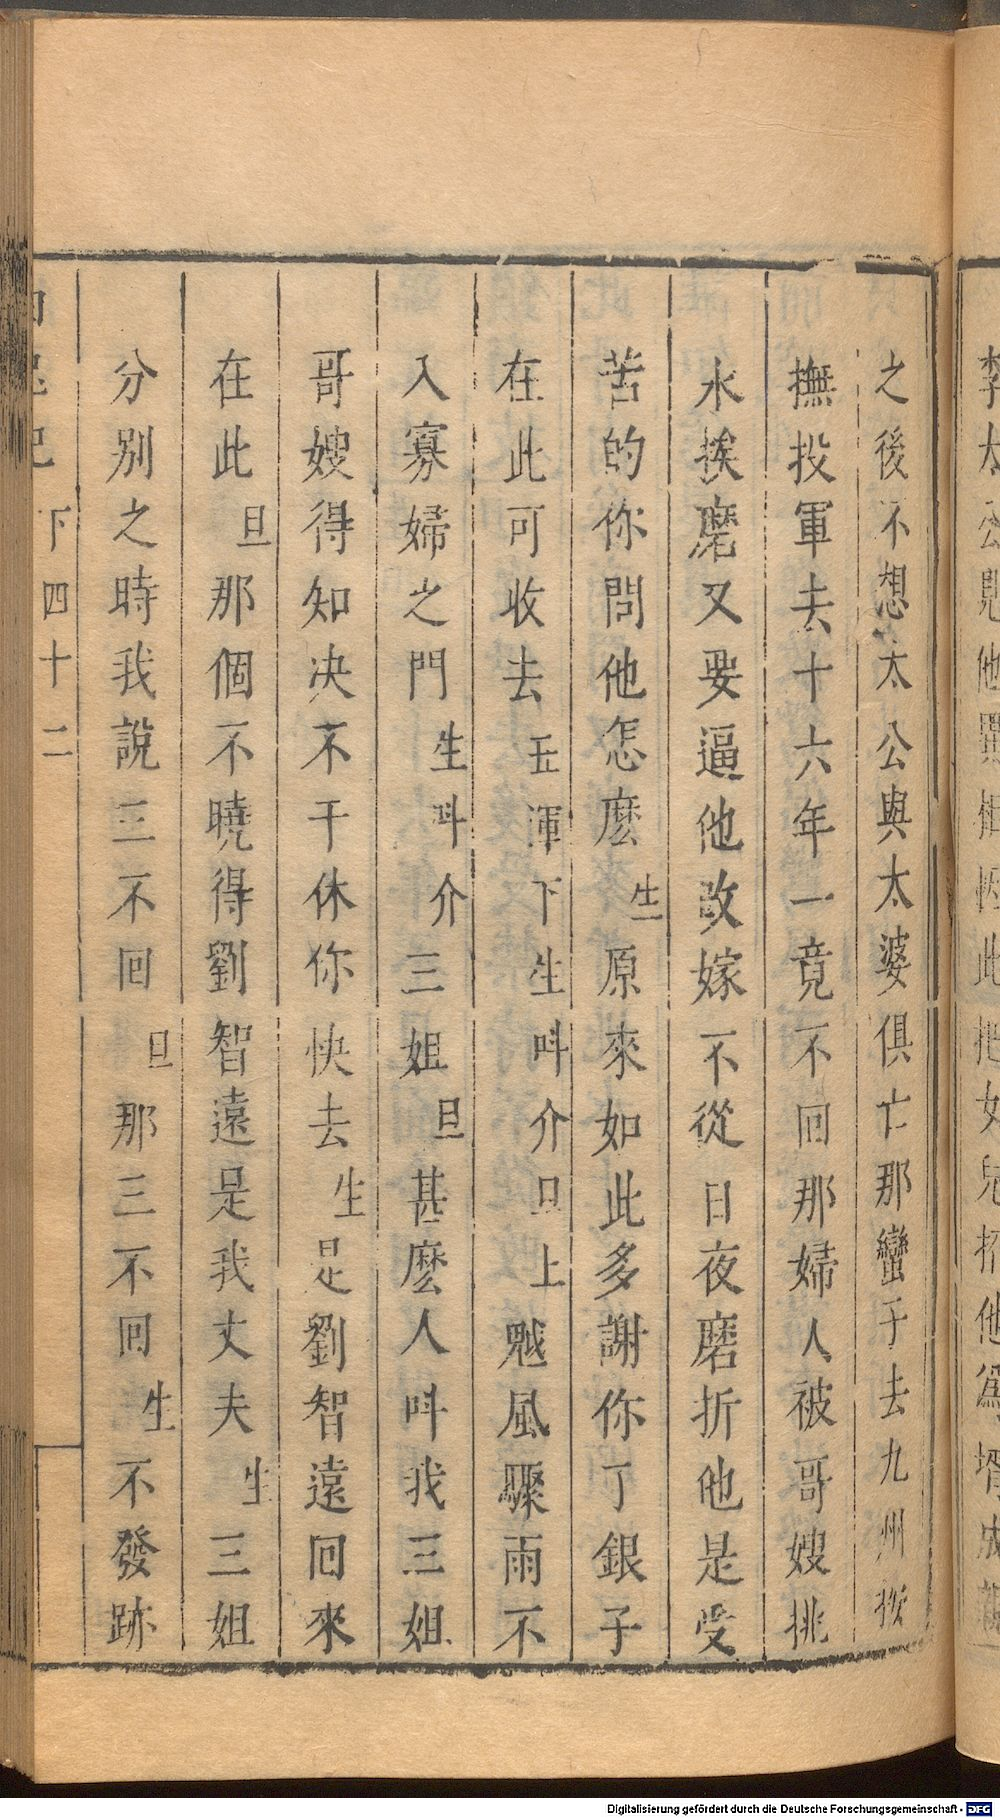 之後不想太公與太婆俱亡那蠻子去九州按
撫投軍去十六年一竟不回那婦人被哥嫂挑
水挨磨又要逼他改嫁不從日夜磨折他是受
苦的你問他怎麽生原來如此多謝你丁銀子
在此可收去五渾下生呌介旦上颩風驟雨不
入寡婦之門生呌介三姐旦甚麽人呌我三姐
哥嫂得知决不干休你快去生是劉智遠回來
在此旦那個不曉得劉智遠是我丈夫生三姐
分别之時我說三不回旦那三不回生不發跡
下四十二
李太公見他異相因此把女兒招他爲壻成親
Digitalisierung gefördert durch die Deutsche Forschungsgemeinschaft - DFG